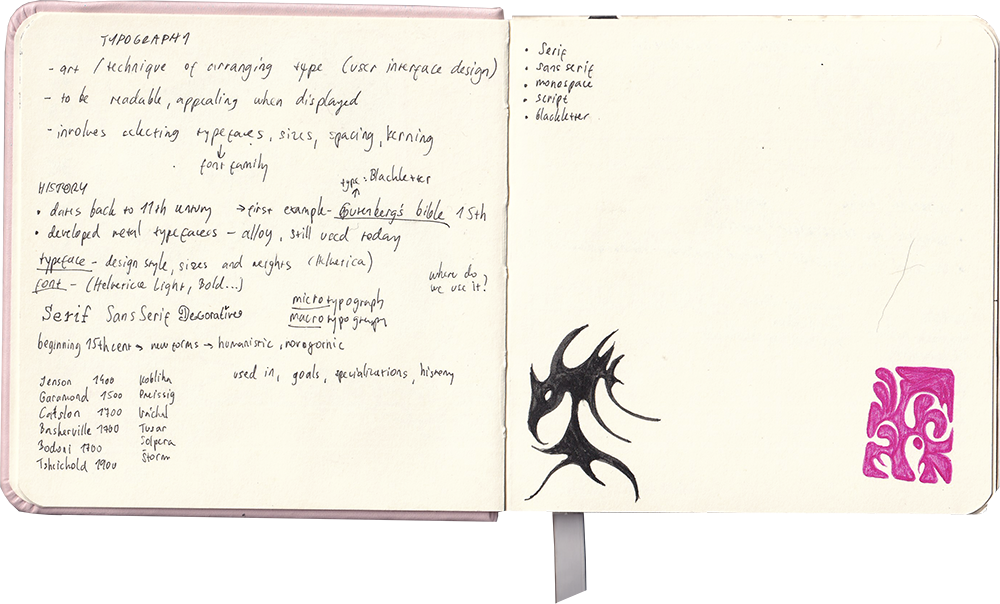 TYPOGRAPHY
- art / technique of arranging type (user interface design)
- to be readable, appealing when displayed
- involves selecting typefaces, sizes, spacing, kerning
↓
font family
HISTORY
type = Blackletter
↑
• dates back to 11th century → first example - Gutenberg's bible 15th
• developed metal typefaces - alloy, still used today
typeface - design style, sizes and weights (Helvetica)
font - (Helvetica Light, Bold...)
where do
we use it?
Serif Sans Serif Decorative
microtypograph
macrotypograph
beginning 15th cent → new forms → humanistic, novogornic
used in, goals, specializations, history
Jenson 1400 Kobliha
Garamond 1500 Preissig
Caslon 1700
Baskerville 1700 Tusar
Bodoni 1700 Solpera
Tshichold 1900 Štorm
• Serif
• sans serif
• monospace
• script
• blackletter